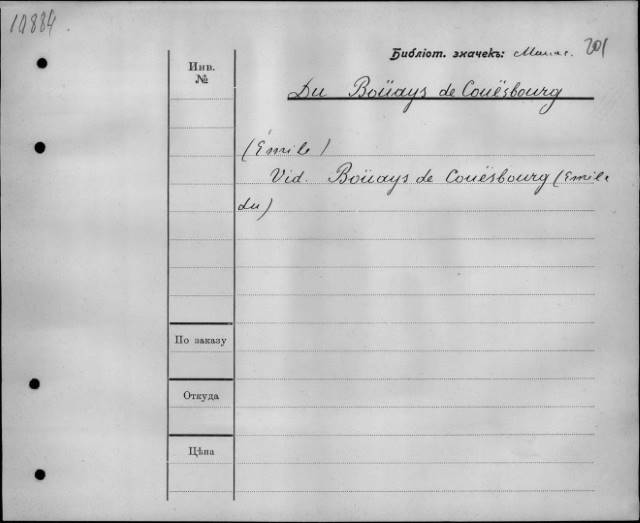 10884.
Библіот. значекъ: Манас. 201
Инв.
№
Du Boüays de Couësbourg
(Émile)
Vid. Boüays de Couësbourg (Emile
du)
По заказу
Откуда
Цѣна